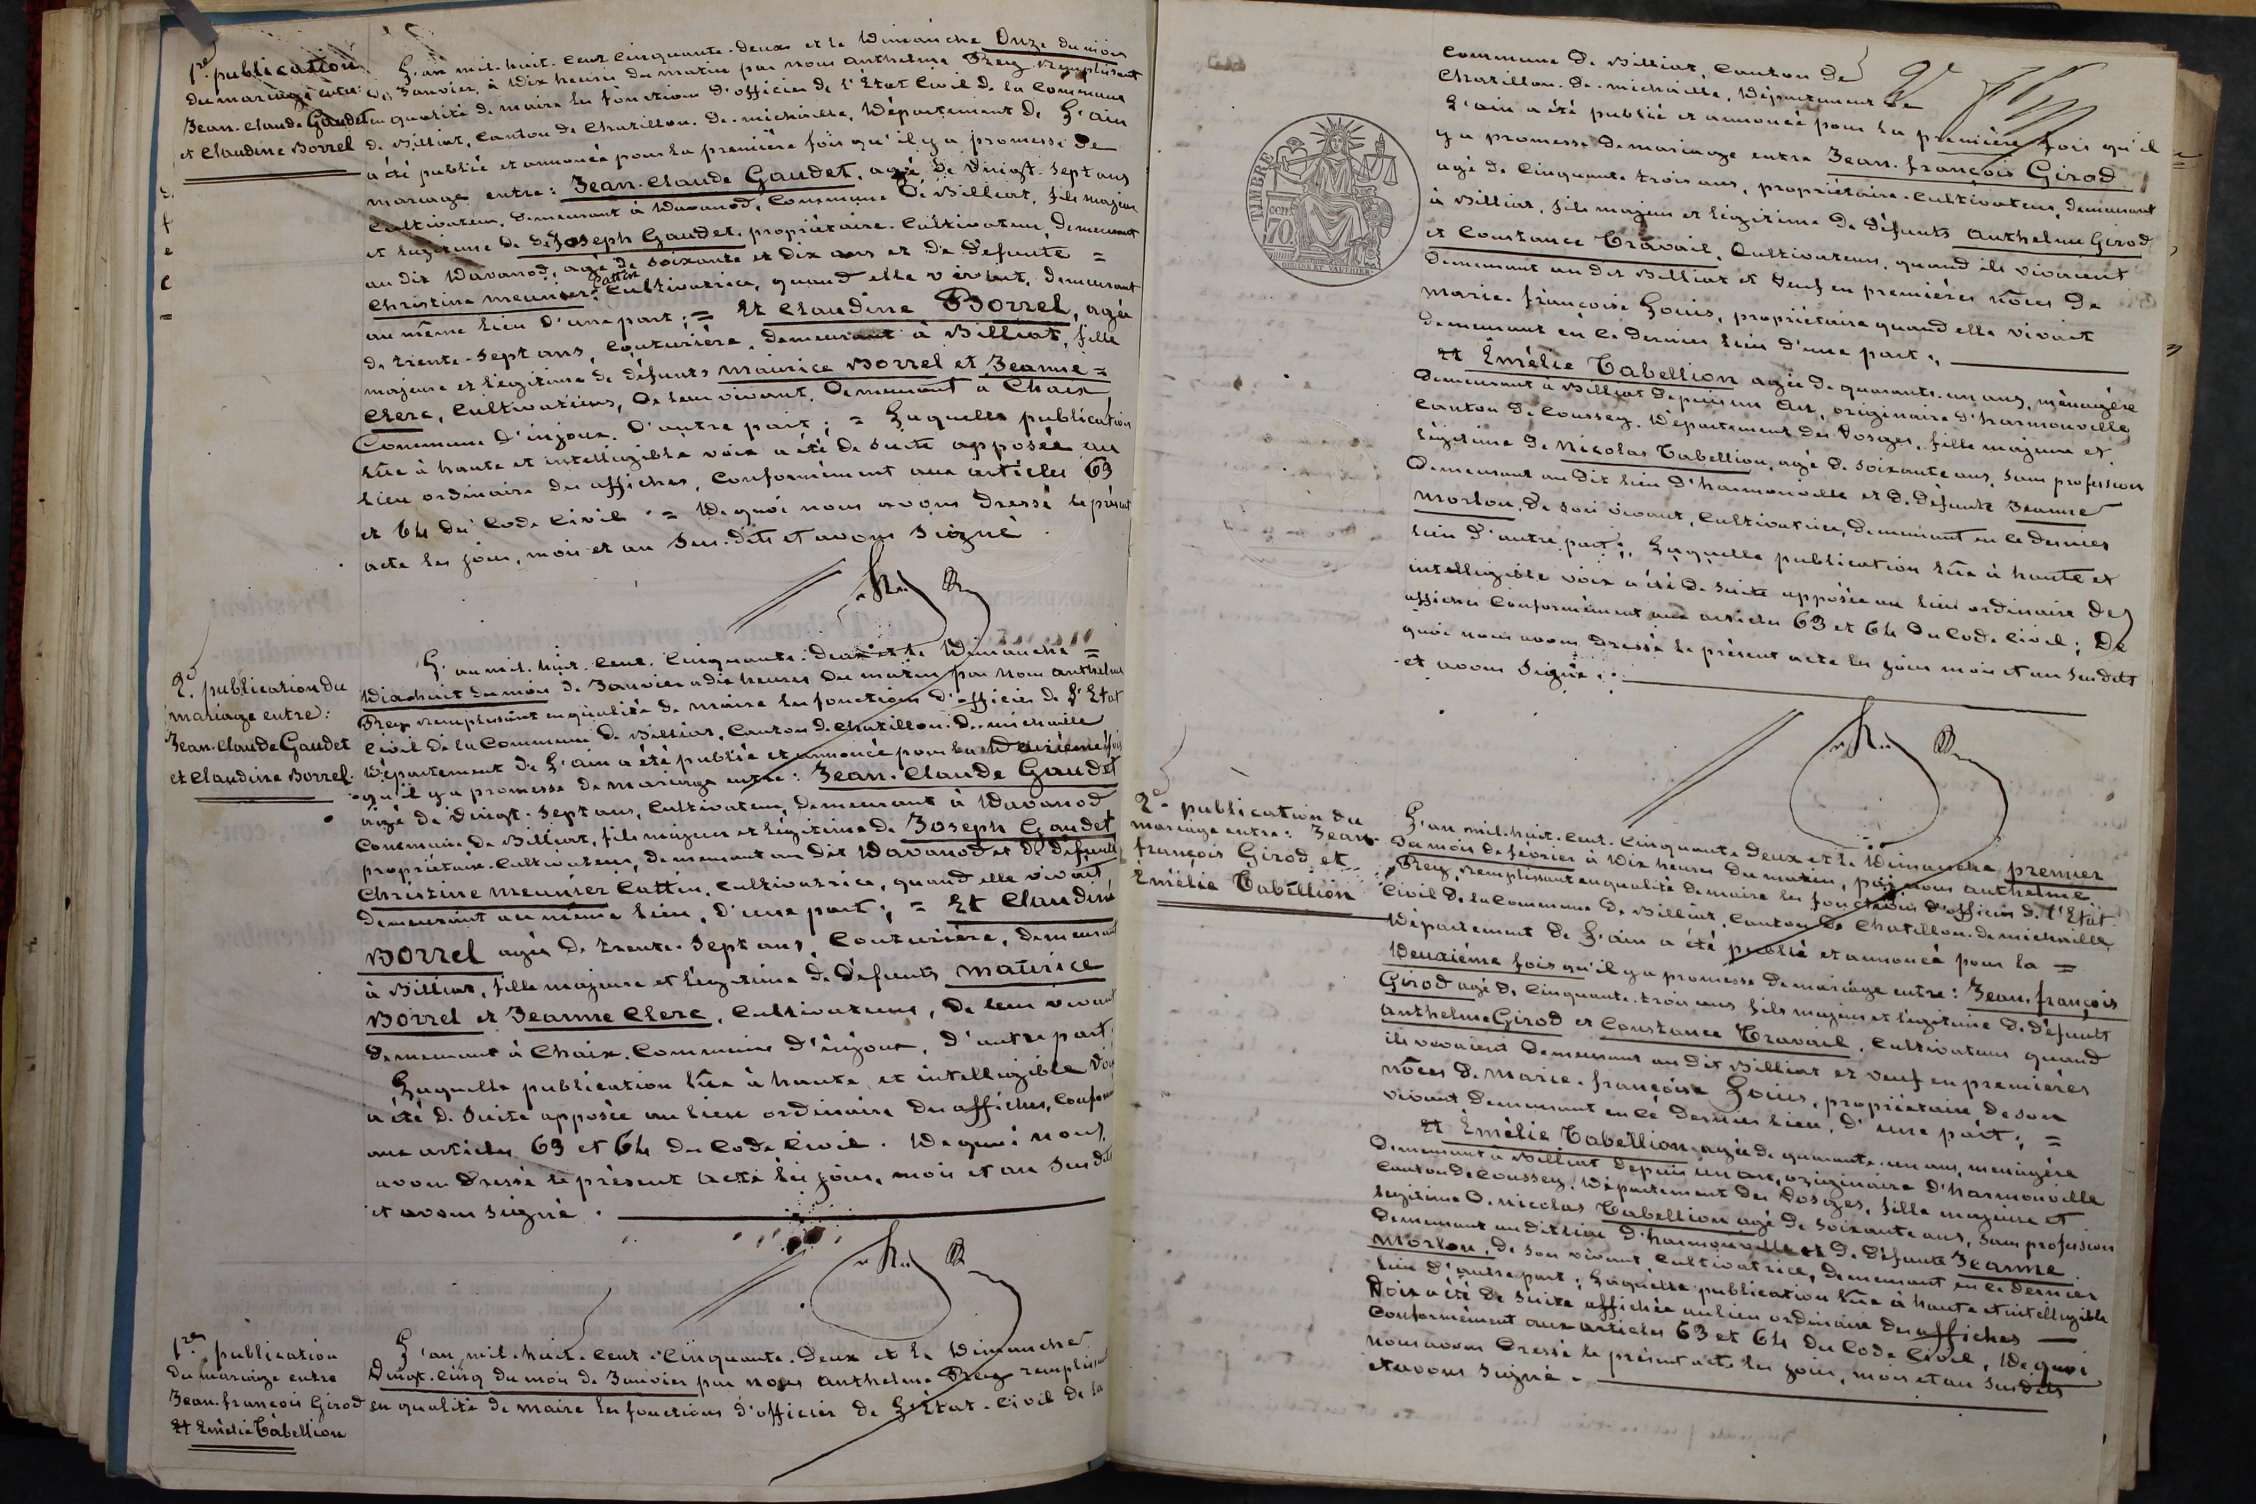 1re publication
du mariage entre
Jean-Claude Gaudet
et Claudine Borrel
L'an mil-huit-cent-cinquante-deux et le Dimanche Onze du mois
de Janvier, à Dix heures du matin par nous Anthelme Rey remplissant
en qualité de maire les fonctions d'officier de l'État Civil de la Commune
de Billiat, Canton de Chatillon-de-michaille, Département de L'ain
a été publié et annoncé pour la première fois qu'il y a promesse de
mariage entre: Jean-Claude Gaudet, agé de vingt-sept ans
Cultivateur, demeurant à Davanod, Commune de Billiat, fils majeur
et légitime de Joseph Gaudet, propriétaire-Cultivateur, demeurant
au dit Davanod, agé de soixante et dix ans et de défunte =
Christine meunier Cattin Cultivatrice, quand elle vivait, demeurant
au même lieu d'une part; = Et Claudine Borrel, agée
de trente-sept ans, Couturière, demeurant à Billiat, fille
majeure et légitime de défunts maurice Borrel et Jeanne =
Clerc, Cultivateurs, de leur vivant, demeurant à Chaix,
Commune d'injoux, D'autre part; = Laquelle publication
lûe à haute et intelligible voix a été de suite apposée au
lieu ordinaire des affiches, Conformément aux articles 63
et 64 du Code Civil = De quoi nous avons dressé le présent
acte les jour, mois et an sus-dits et avons signé.
2e publication du
mariage entre:
Jean-Claude Gaudet
et Claudine Borrel.
L'an mil-huit-cent-cinquante-deux et le Dimanche =
Dix-huit du mois de Janvier à dix heures du matin par nous Anthelme
Rey remplissant en qualité de maire les fonctions d'officier de L'Etat
Civil de la Commune de Billiat, Canton de Chatillon-de-michaille
Département de L'ain a été publié et annoncé pour la Deuxième fois
qu'il y a promesse de mariage entre: Jean-Claude Gaudet
agé de vingt-sept ans, Cultivateur, demeurant à Davanod
Commune de Billiat, fils majeur et légitime de Joseph Gaudet
propriétaire-Cultivateur, demeurant au dit Davanod et de défunte
Christine meunier Cattin, Cultivatrice, quand elle vivait,
demeurant au même lieu, d'une part; = Et Claudine
Borrel agée de trente-sept ans, Couturière, demeurant
à Billiat, fille majeure et légitime de défunts maurice
Borrel et Jeanne Clerc, Cultivateurs, de leur vivant
demeurant à Chaix, Commune d'injoux, d'autre part
Laquelle publication lûe à haute et intelligible voix
a été de suite apposée au lieu ordinaire des affiches,
aux articles 63 et 64 du Code Civil. De quoi nous
avons dressé le présent acte les jour, mois et an susdits
et avons signé.
1re publication
du mariage entre
Jean-françois Girod
Et Emélie Tabellion
L'an mil-huit-cent-cinquante-deux et le Dimanche
Vingt-cinq du mois de Janvier par nous Anthelme Rey remplissant
en qualité de maire les fonctions d'officier de L'État-Civil de la
Commune de Billiat, Canton de
Chatillon-de-michaille, Département de
L'ain a été publié et annoncé pour la première fois qu'il
y a promesse de mariage entre Jean-françois Girod
agé de Cinquante trois ans, propriétaire-Cultivateur, demeurant
à Billiat, fils majeur et légitime de défunts Anthelme Girod
et Constance Travail, Cultivateurs, quand ils vivaient
demeurant au dit Billiat et veuf en premières nôces de
Marie-françoise Louis, propriétaire quand elle vivait
demeurant en ce dernier lieu d'une part;
Et Emélie Tabellion agée de quarante-un ans, ménagère
demeurant à Billiat depuis un an, originaire d'harmonville
Canton de Coussey, Département des Vosges, fille majeure et
légitime de Nicolas Tabellion, agé de soixante ans, sans profession
demeurant au dit lieu d'harmonville et de défunte Jeanne
Morlon, de son vivant, Cultivatrice, demeurant en ce dernier
lieu d'autre part; Laquelle publication lûe à haute et
intelligible voix a été de suite apposée au lieu ordinaire des
affiches Conformément aux articles 63 et 64 du Code Civil; De
quoi nous avons dressé le présent acte les jour mois et an susdits
et avons signé.
TIMBRE
70
2e publication du
mariage entre: Jean
françois Girod et
Emélie Tabellion
L'an mil-huit-cent-cinquante-deux et le Dimanche premier
du mois de février à Dix heures du matin, par nous Anthelme
Rey, remplissant en qualité de maire les fonctions d'officier de l'Etat
Civil de la Commune de Billiat, Canton de Chatillon-de-michaille,
Département de L'ain a été publié et annoncé pour la =
Deuxième fois qu'il y a promesse de mariage entre: Jean-françois
Girod agé de Cinquante-trois ans fils majeur et légitime de défunts
Anthelme Girod et Constance Travail, Cultivateurs quand
ils vivaient demeurant au dit Billiat et veuf en premières
nôces de Marie-françoise Louis, propriétaire de son
vivant demeurant en ce dernier lieu, d'une part; =
Et Emélie Tabellion agée de quarante-un ans, menagère
demeurant à Billiat depuis un an, originaire d'harmonville
Canton de Coussey, Département des Vosges, fille majeure et
légitime de Nicolas Tabellion agé de soixante ans, sans profession
demeurant au dit lieu d'harmonville et de défunte Jeanne
Morlon, de son vivant, Cultivatrice, demeurant en ce dernier
lieu d'autre part; Laquelle publication lûe à haute et intelligible
Voix a été de suite affichée au lieu ordinaire des affiches
Conformément aux articles 63 et 64 du Code Civil, De quoi
nous avons dressé le présent acte les jour, mois et an susdits
et avons signé.